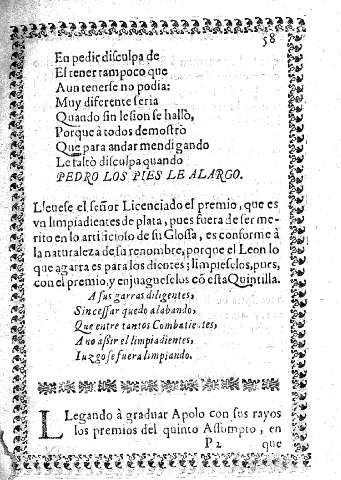 58
En pedir disculpa de
El tener tampoco que
Aun tenerse no podia:
Muy diferente seria
Quando sin lesion se hallò,
Porque à todos demostrò
Que para andar mendigando
Le faltò disculpa quando
PEDRO LOS PIES LE ALARGO.
Lleuese el señor Licenciado el premio, que es
vn limpiadientes de plata, pues fuera de ser me-
rito en lo artificioso de su Glossa, es conforme à
la naturaleza de su renombre, porque el Leon lo
que agarra es para los dientes; limpieselos, pues,
con el premio, y enjuagueselos cõ esta Quintilla.
A sus garras diligentes,
Sin cessar quedo alabando,
Que entre tantos Combatientes,
A no assir el limpiadientes,
Iuzgo se fuera limpiando.
LLegando à graduar Apolo con sus rayos
los premios del quinto Assumpto, en
P 2 que